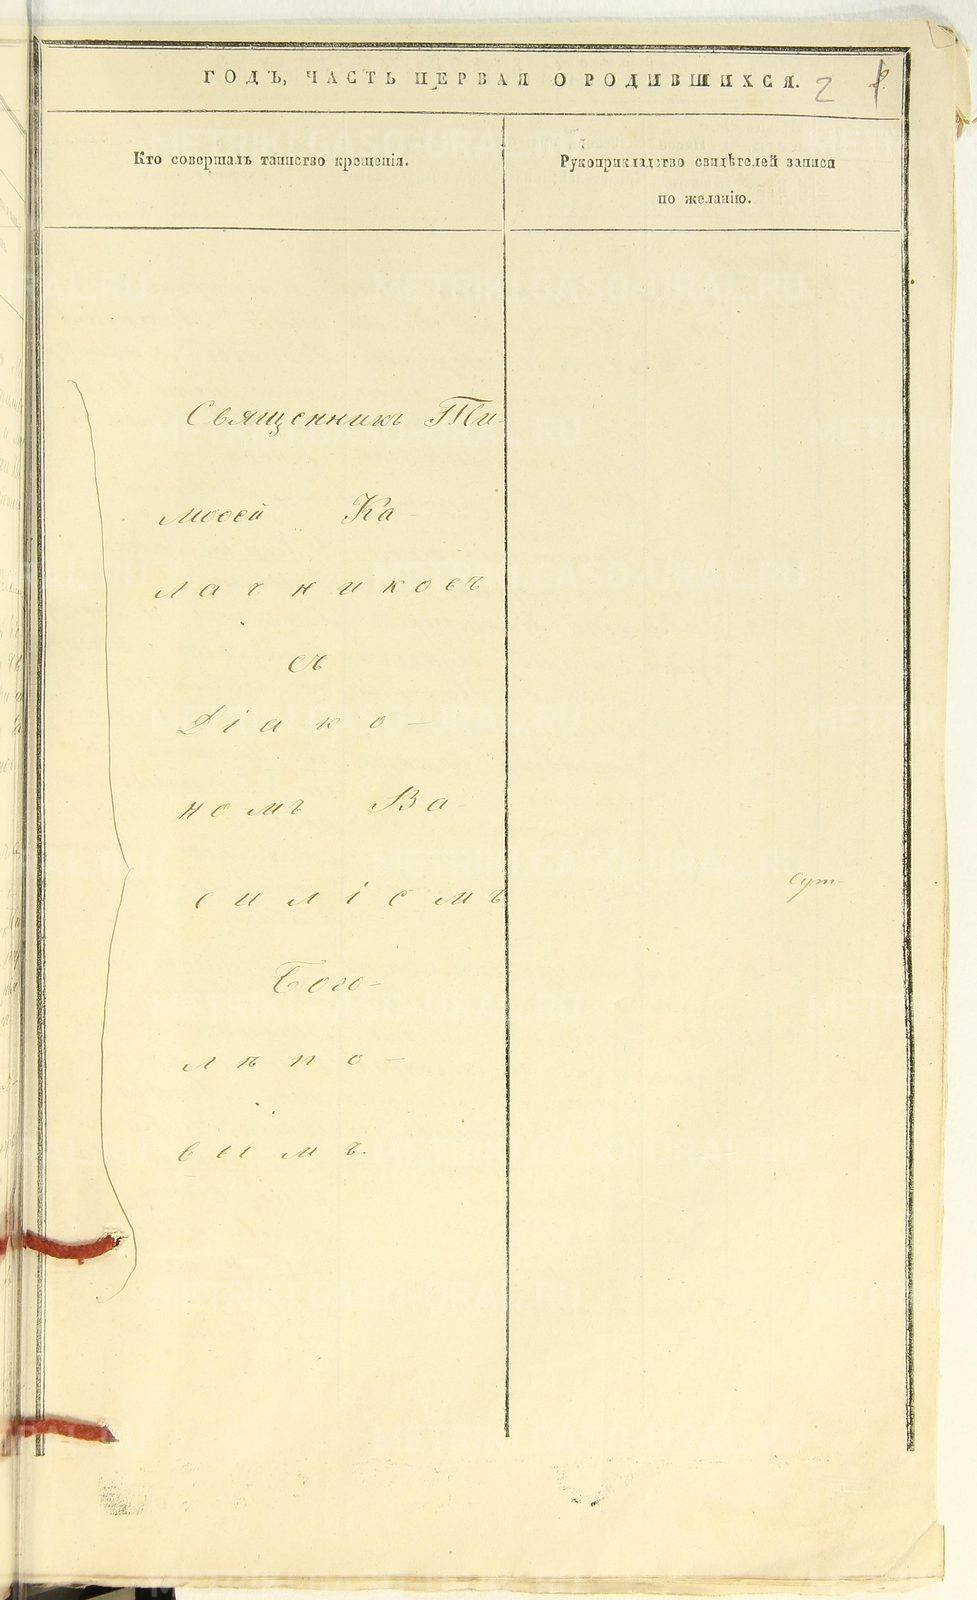 ГОДЪ, ЧАСТЬ ПЕРВАЯ О РОДИВШИХСЯ. 2
Кто совершалъ таинство крещенія.
Рукоприкладство свидѣтелей записи
по желанію.
Священникъ Ти-
моѳей Ка-
лачниковъ
съ
Діако-
номъ Ва-
силіемъ
Бого-
лѣпо-
вымъ.
METRIKI.GASO-URAL.RU